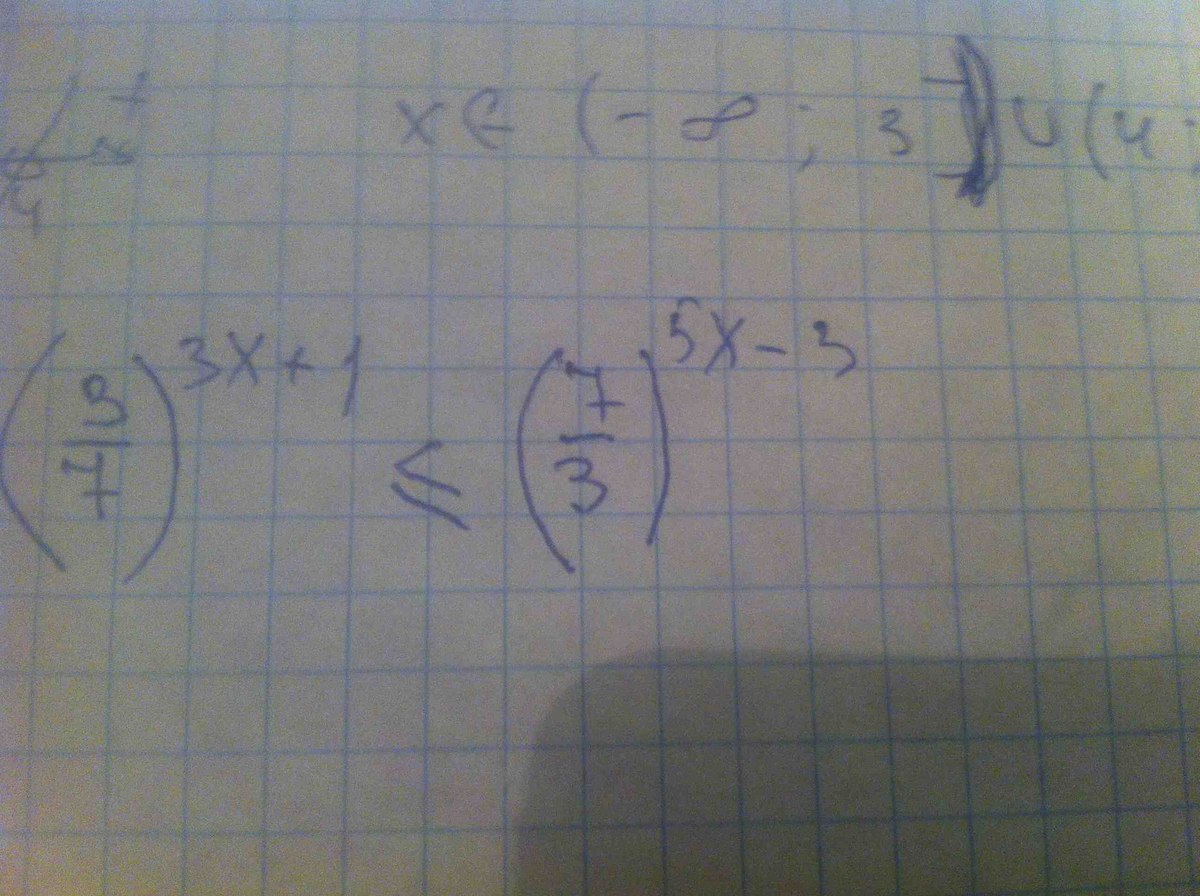 + x ∈ (-∞; 3) ∪ (4;
4
(3/7)^{3x+1} ≤ (7/3)^{5x-3}